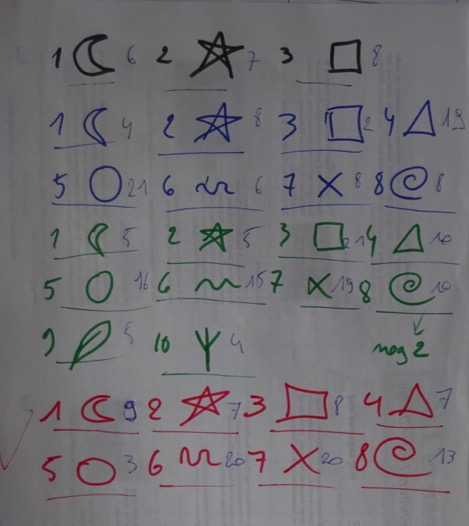 1 6 2 7 3 8
1 4 2 8 3 2 4 19
5 21 6 6 7 8 8 8
1 5 2 5 3 21 4 10
5 16 6 15 7 19 8 10
9 5 10 4
nog 2
1 9 2 7 3 8 4 7
5 3 6 20 7 20 8 13